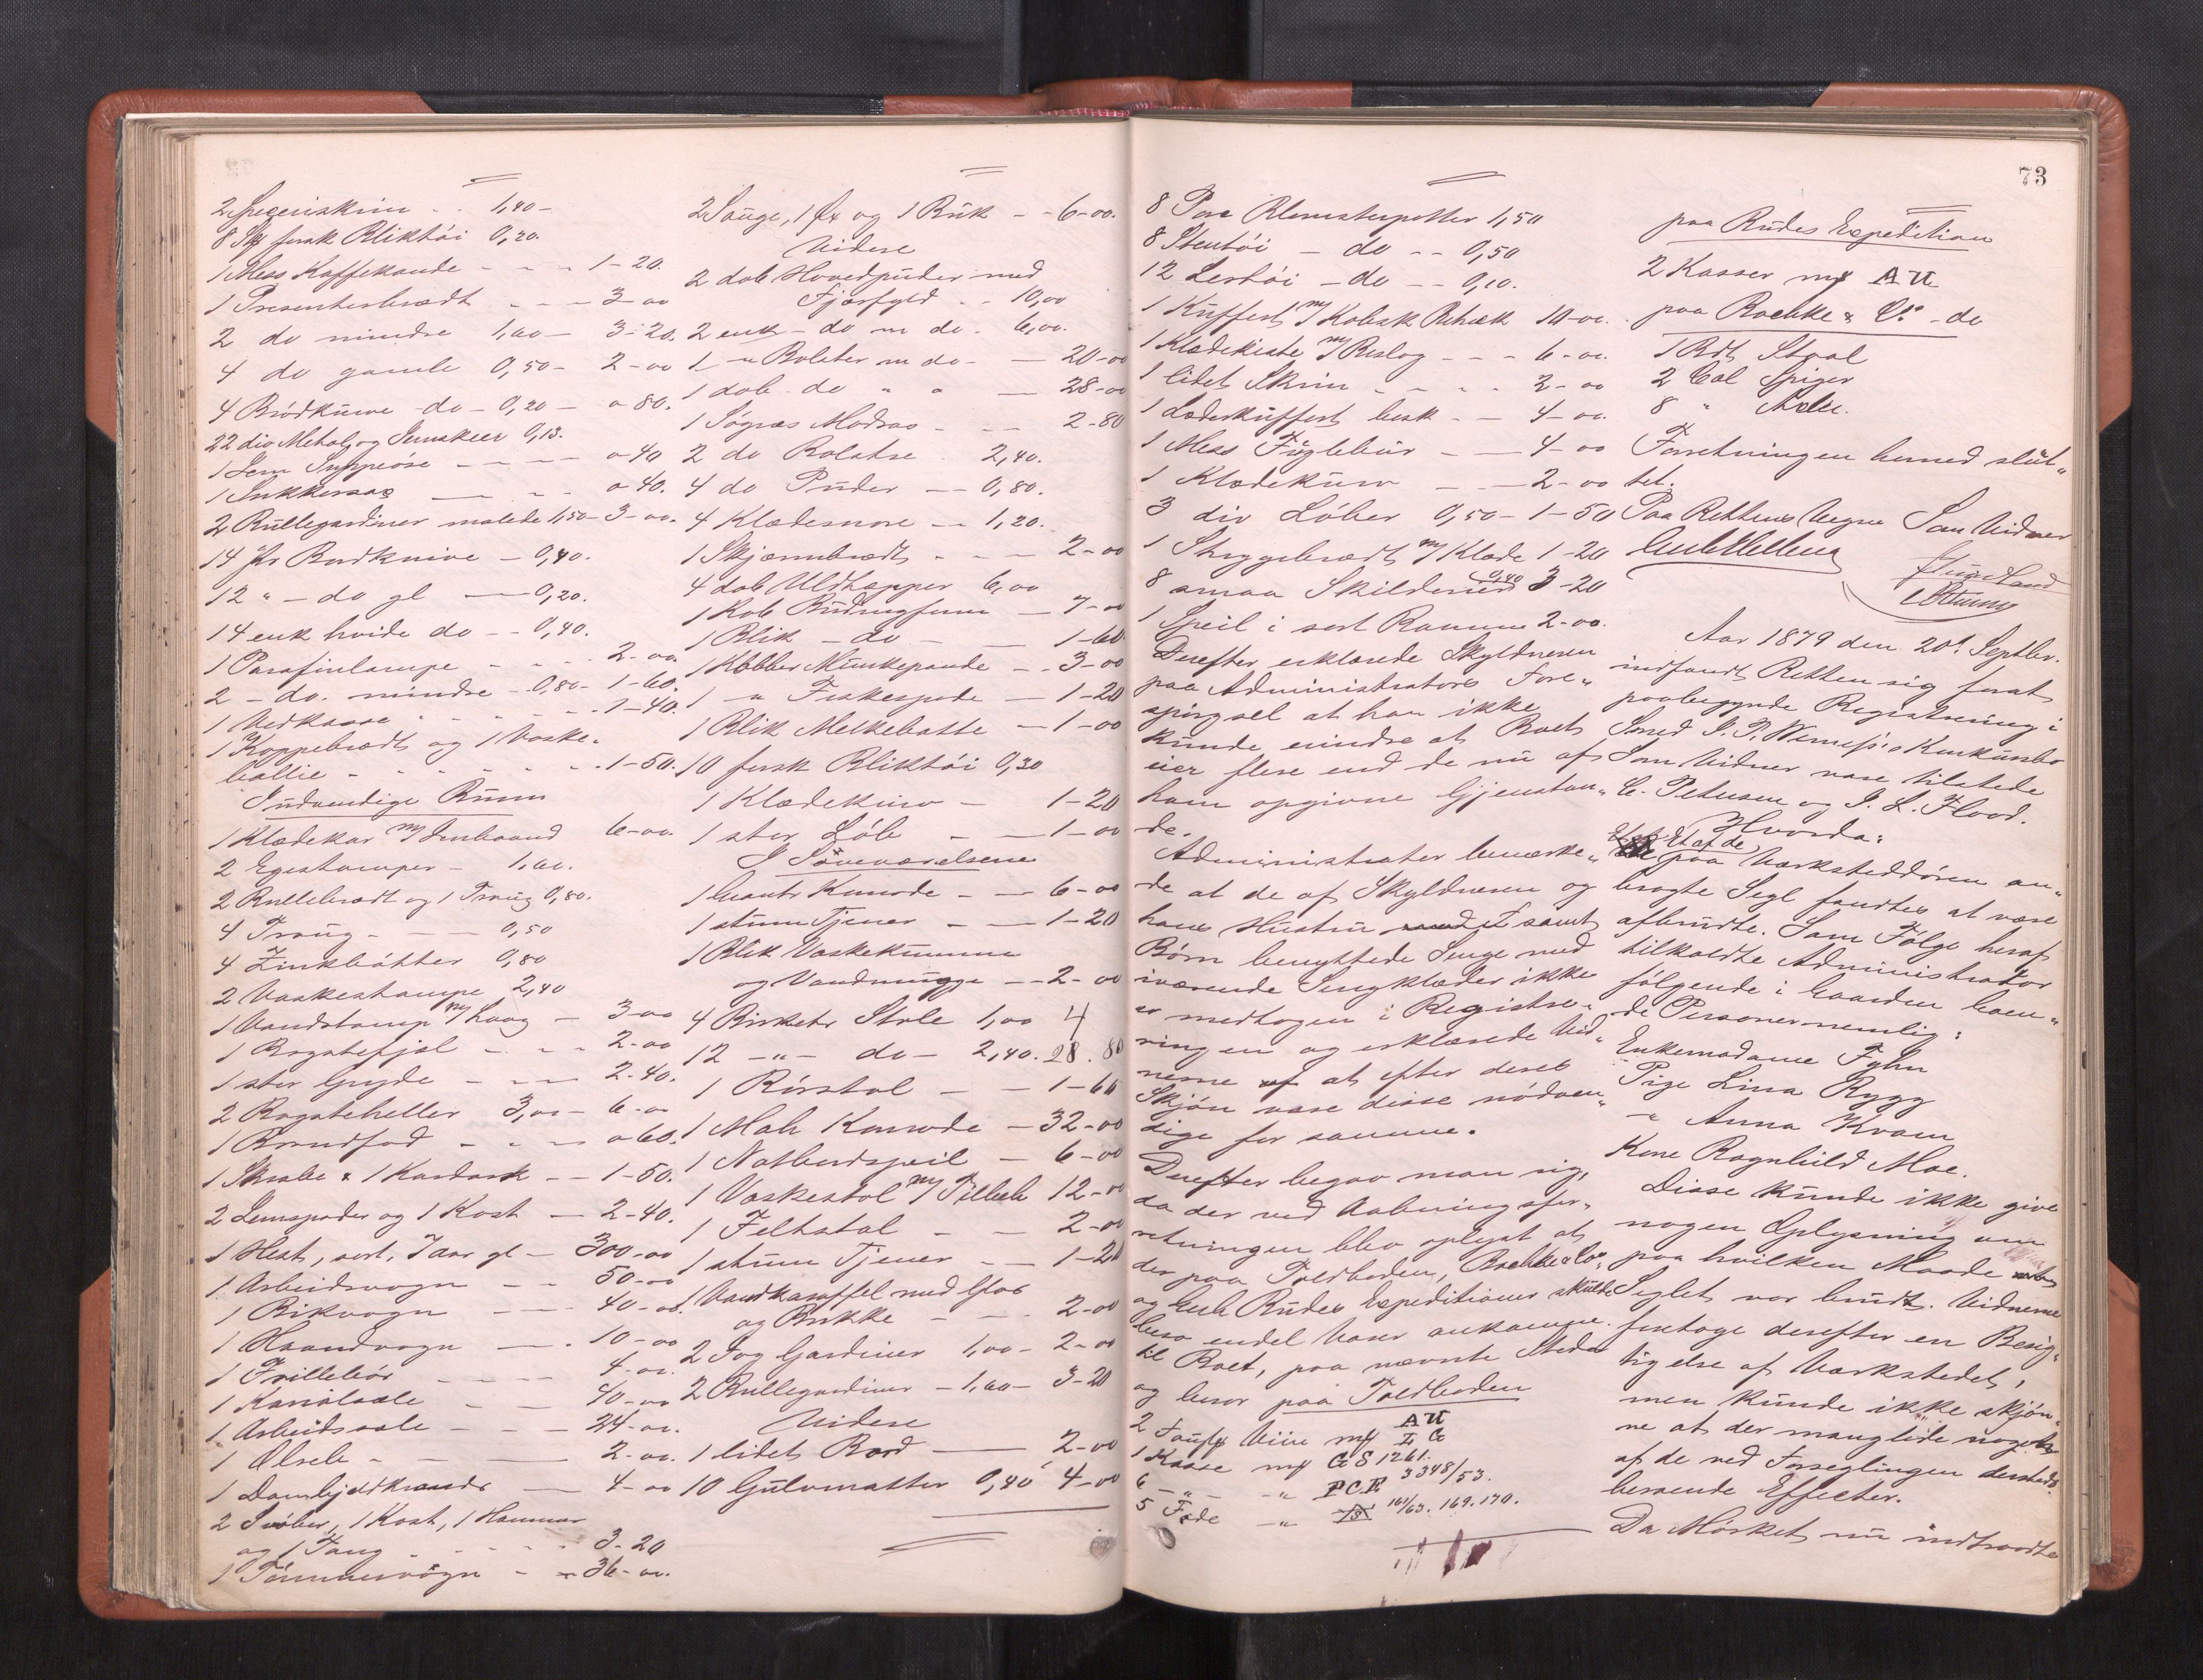 2 Speceriskrin - - 1,40 -
8 St fersk Bliktøi 0,20.
1 Mess Kaffekande - - - 1-20.
1 Presenterbrædt - - - 3-00
2 do mindre 1,60 - 3-20.
4 do gamle 0,50 - 2-00
4 Brödkurve do - 0,20 - 0-80.
22 div Metal og Jernskeer 0,13.
1 Jern Suppeöse - - - 0-40
1 Sukkersax - - 0-40.
2 Rullegardiner malede 1,50 - 3-00.
14 Pr Bordknive - 0,40.
12 " - do gl - 0,20.
14 enk hvide do - - 0,40.
1 Parafinlampe - - - 2-00.
2 - do. mindre - 0,80 - 1-60.
1 Vedkasse - - - 1-40.
1 Koppebrædt og 1 Vaske-
ballie - - - - - 1-50.
Indvendige Rum
1 Klædekar m/ Jernbaand 6-00.
2 Egestamper - 1,60.
2 Rullebrædt og 1 Traug 0,80.
4 Traug - - - 0,50
4 Zinkbötter 0,80
2 Vaskestampe 2,40
1 Vandstamp m/ Laag - 3-00
1 Bagstefjøl - - - 2-00
1 stor Gryde - - - 2-40.
2 Bagsteheller 3,00 - 6-00
1 Brandfad - - - 0-60.
1 Skrabe & 1 Kardask - - 1-50.
2 Jernspader og 1 Kost - 2-40.
1 Hest, sort, 7 aar gl - 300-00
1 Arbeidsvogn - - 50-00
1 Rikvogn - - 40-00.
1 Haandvogn - - 10-00
1 Trillebør - - - 4-00.
1 Kariolsele - - 40-00
1 Arbeidssele - - - 24-00.
1 Ølsele - - - 2-00.
1 Dombjeldkrands - 4-00
2 Svøber, 1 Kost, 1 Hammer
og 1 Tang - - - - 3-20
1 Tömmervogn - - 36-00.
2 Sauge, 1 Øx og 1 Buk - - 6-00.
Videre
2 dob Hovedpuder med
Fjærfyld - - 10,00
2 enk - do m do. 6,00.
1 - " Bolster m do - - 20-00
1 dob. do " " - 28-00
1 Søgræs Madras - - - 2-80
2 do Bolstre - 2,40.
4 do Puder - - 0,80.
4 Klædesnore - - 1,20.
1 Skjærmbrædt - - - 2-00
4 dob Uldtæpper 6,00
1 Kob Budingform - 7-00
1 Blik - do - 1-60
1 Kobber Munkepande - - 3-00
1 - " Fiskespade - 1-20
1 Blik Melkebøtte - 1-00
10 fersk Bliktøi 0,30
1 Klædekurv - 1-20
1 stor Løb - - 1-00
I Soveværelserne
1 Kunode - - 6-00
1 stum Tjener - - 1-20
1 Blik Vaskekumme
og Vandmugge - - 2-00
4 Birketr Stole 1,00 4
12 - " - do - 2,40. 28.80
1 Rörstol - - 1-60
1 Mah Komode - 32-00
1 Natbordspeil - 6-00
1 Vaskestol m/ Tilbeh 12-00
1 Feltstol - - 2-00
1 stum Tjener - - 1-20
1 Vandkaraffel med Glas
og Bakke - - - 2-00
2 Fag Gardiner 1,00 - 2-00
2 Rullegardiner - 1,60 - 3-20
Videre
1 lidet Bord - 2-00
10 Gulvmatter 0,40 4-00
73
8 Pose Blomsterpotter 1,50
8 Stentøi - do - - 0,50
12 Lertøi - do - - 0,10.
1 Kuffert m/ Kobsk Betræk 10-00.
1 Klædekiste m/ Beslag - - - 6-00.
1 lidet Skrin - - - - 2-00
1 Læderkuffert besk - - 4-00.
1 Mess Fuglebur - - 4-00
1 Klædekurv - - 2-00
3 div Løber 0,50 - 1-50
1 Strygebrædt m/ Klæde 1-20
8 smaa Skilderier 0,40 3-20
1 Speil i sort Ramme 2-00.
Derefter erklærede Skyldneren
paa Administrators Fore-
spörgsel at han ikke
kunde erindre at Boet
eier flere end de nu af
ham opgivne Gjenstan-
de.
Administrator bemærke-
de at de af Skyldneren og
hans Hustru samt
Börn benyttede Senge med
iværende Sengklæder ikke
er medtagen i Registre-
ringen og erklærede Vid-
nerne at efter deres
Skjön vare disse nödven-
dige for samme.
Derefter begav man sig,
da der ved Aabningsfor-
retningen blev oplyst at
der paa Toldboden, Boehke & Co
og Rudes Expeditioner skulde
bero endel Varer ankomne
til Boet, paa nævnte Steder
og beror paa Toldboden
2 Fustg Viin m/ AU I G
1 Kasse m/ G S 1261.
6 - " - - " P C F 3348/53.
5 Fade - " 161/63. 169. 170.
paa Rudes Expedition
2 Kasser m/ AU
paa Boehke & Co - do
1 Bdt Staal
2 Col Spiger
8 " Axler.
Forretningen hermed slut-
tet.
Paa Rettens Vegne Som Vidner
Aar 1879 den 20d Septbr.
indfandt Retten sig forat
paabegynde Registrering i
Smed Konkursbo
Som Vidner vare tilstede
C. Petersen og J. L. Flood.
Hvorda:
Et af de
paa Værksteddören an-
bragte Segl fandtes at være
afbrudte. Som Fölge heraf
tilkaldte Administrator
fölgende i Gaarden boen-
de Personer nemlig:
Enkemadame Fyhn
Pige Lina Rygg
- " Anna Kvam
Kone Ragnhild Moe.
Disse kunde ikke give
nogen Oplysning om
paa hvilken Maade
Seglet var brudt. Vidnerne
foretoge derefter en Besig-
tigelse af Værkstedet,
men kunde ikke skjøn-
ne at der manglede noget
af de ved Forseglingen dersteds
beroende Effecter.
Da Mørket nu indtraadte